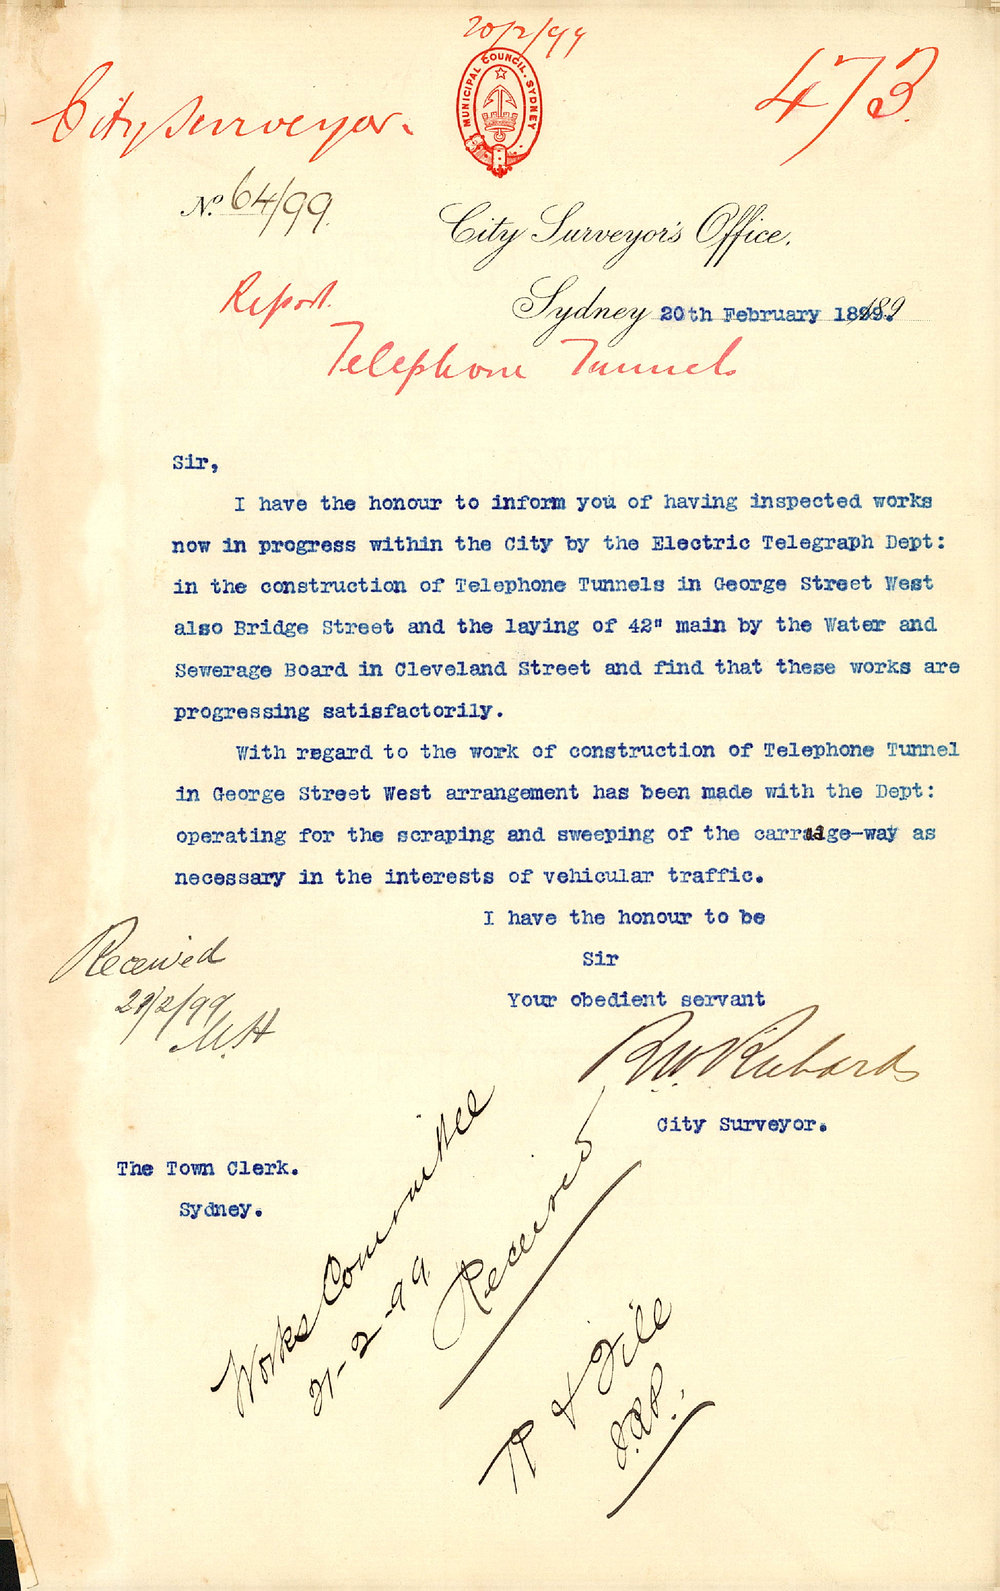 20/2/99
City Surveyor.
MUNICIPAL COUNCIL. SYDNEY
473.
No. 64/99.
City Surveyor's Office.
Report.
Sydney 20th February 1899. 189
Telephone Tunnels
Sir,
I have the honour to inform you of having inspected works
now in progress within the City by the Electric Telegraph Dept:
in the construction of Telephone Tunnels in George Street West
also Bridge Street and the laying of 42" main by the Water and
Sewerage Board in Cleveland Street and find that these works are
progressing satisfactorily.
With regard to the work of construction of Telephone Tunnel
in George Street West arrangement has been made with the Dept:
operating for the scraping and sweeping of the carraige-way as
necessary in the interests of vehicular traffic.
I have the honour to be
Sir
Your obedient servant
Received
21/2/99
M.H
R.W. Richards
City Surveyor.
The Town Clerk.
Sydney.
Works Committee
21-2-99.
Received
R & File